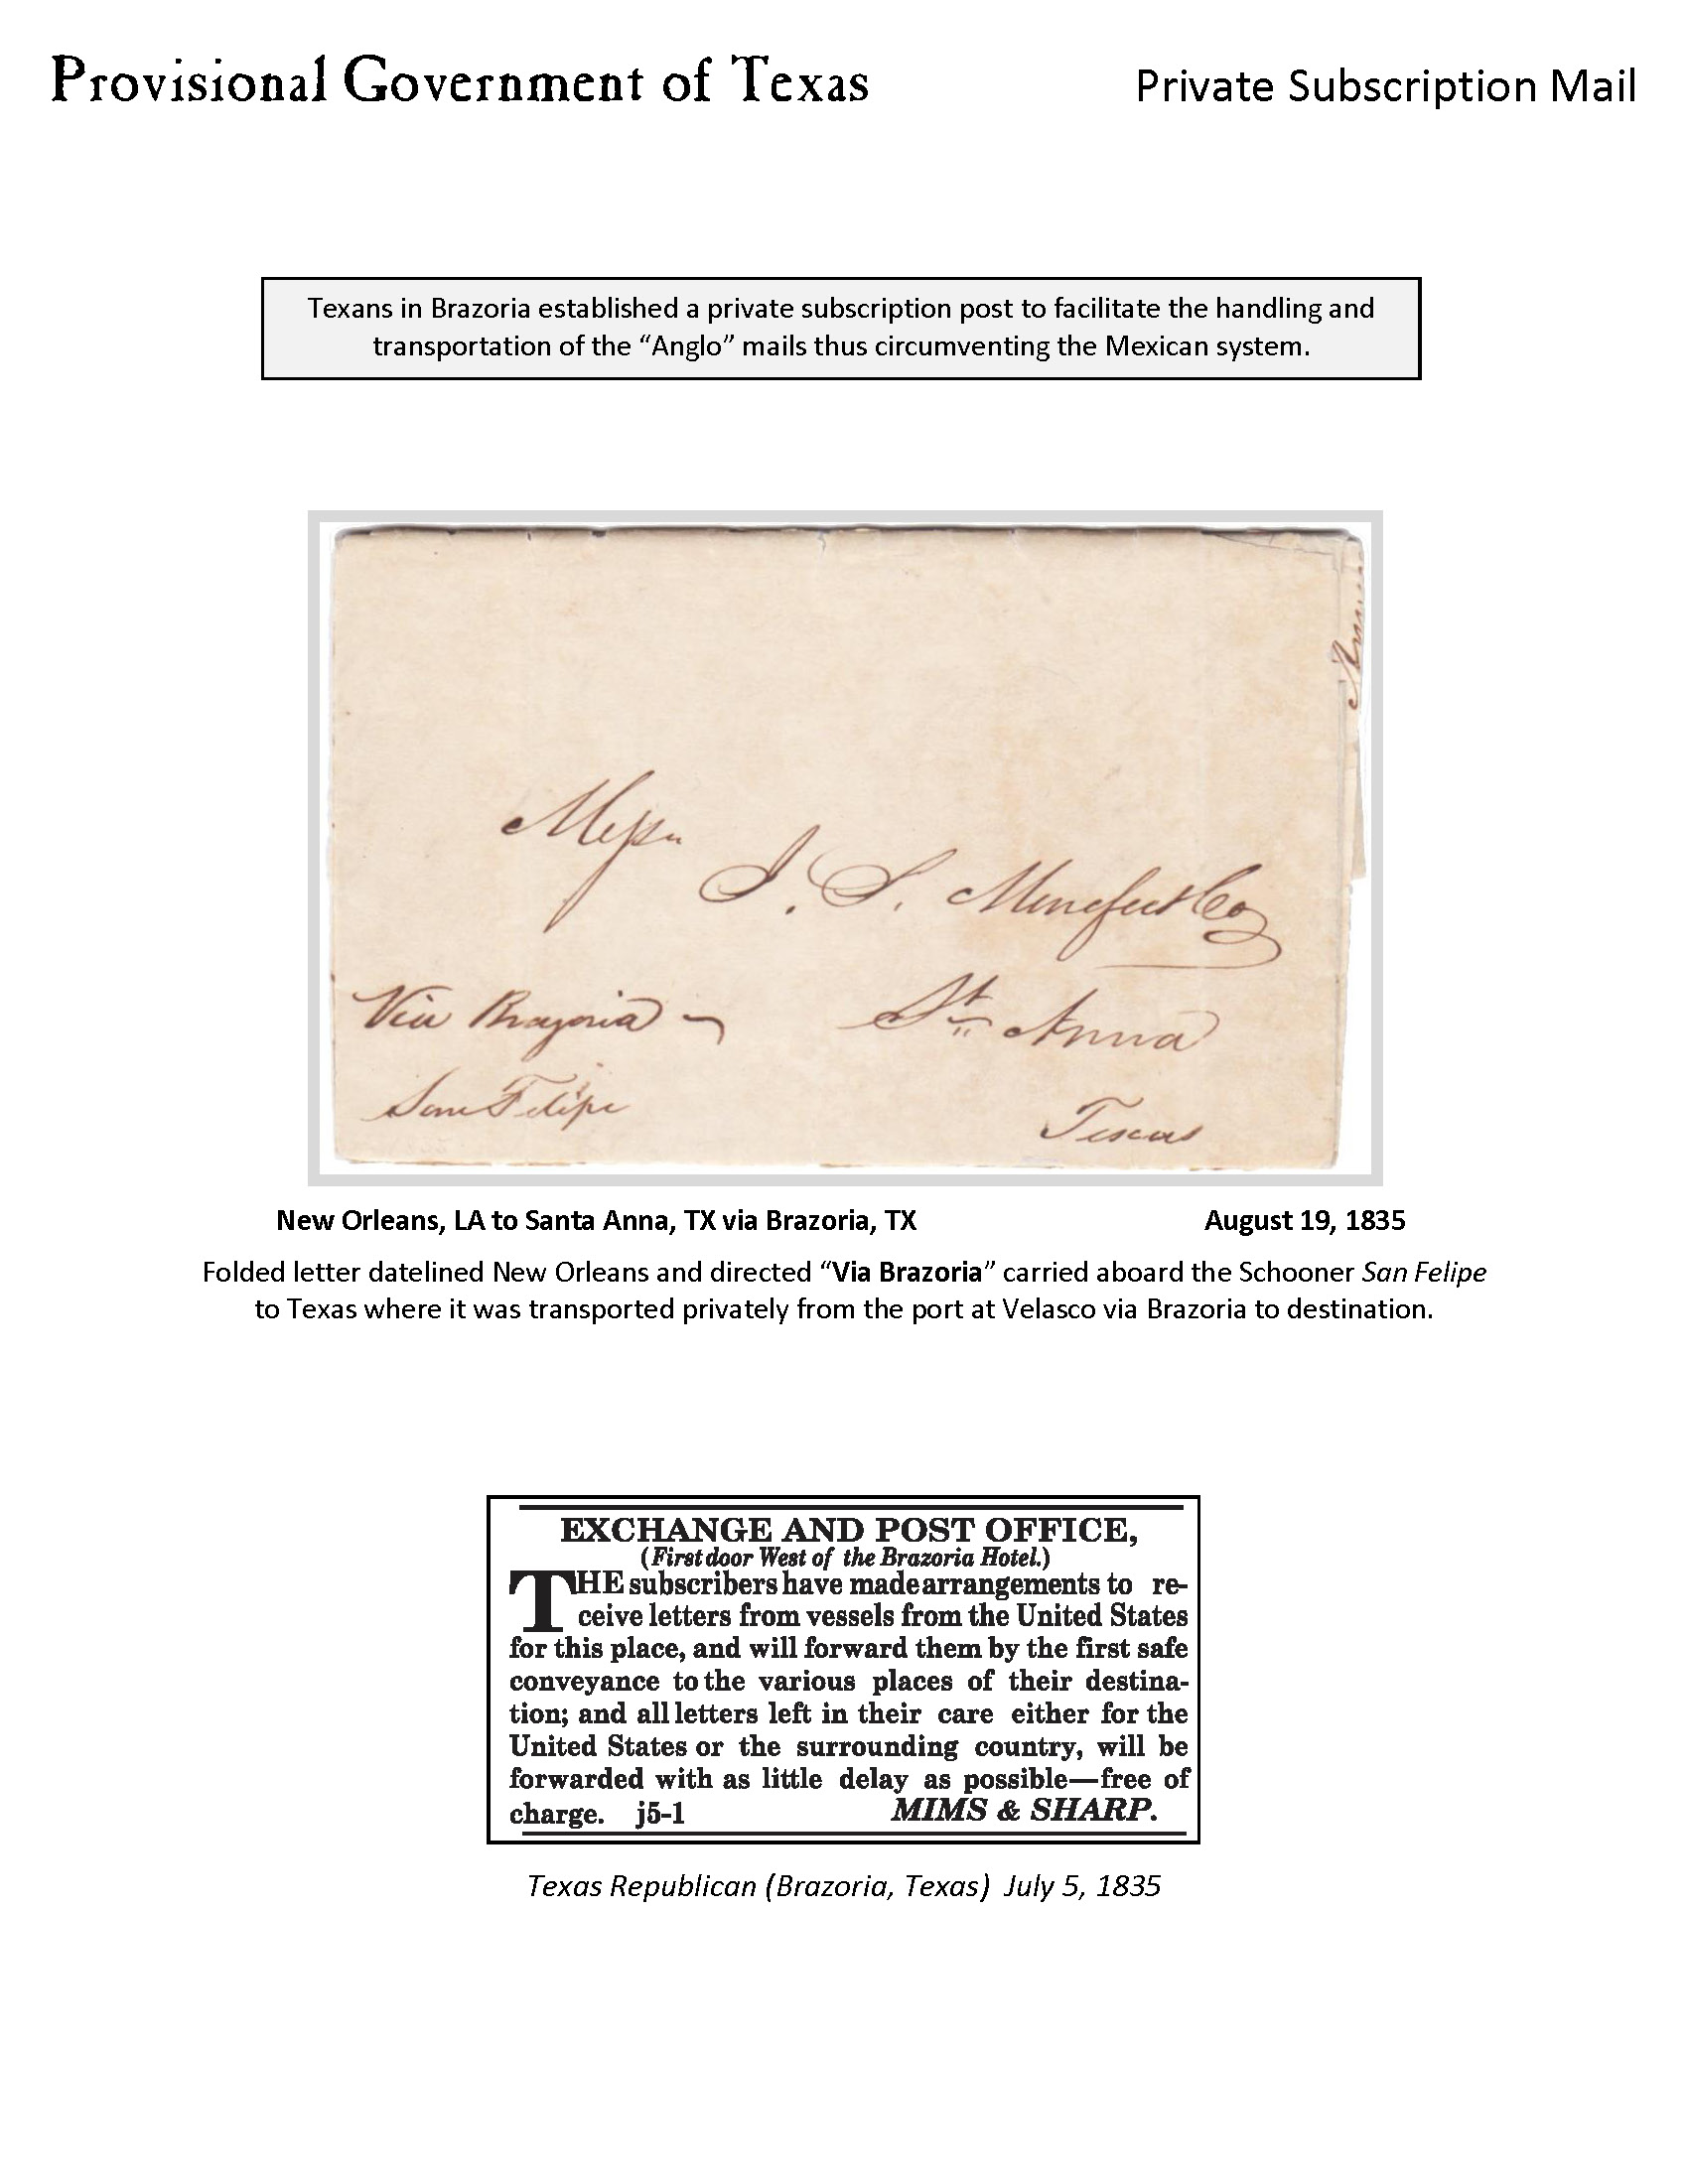 Provisional Government of Texas
Private Subscription Mail
Texans in Brazoria established a private subscription post to facilitate the handling and
transportation of the “Anglo” mails thus circumventing the Mexican system.
Messrs
J. S. Menefee & Co
Via Brazoria
St. Anna
San Felipe
Texas
New Orleans, LA to Santa Anna, TX via Brazoria, TX
August 19, 1835
Folded letter datelined New Orleans and directed “Via Brazoria” carried aboard the Schooner San Felipe
to Texas where it was transported privately from the port at Velasco via Brazoria to destination.
EXCHANGE AND POST OFFICE,
(First door West of the Brazoria Hotel.)
THE subscribers have made arrangements to re-
ceive letters from vessels from the United States
for this place, and will forward them by the first safe
conveyance to the various places of their destina-
tion; and all letters left in their care either for the
United States or the surrounding country, will be
forwarded with as little delay as possible—free of
charge. j5-1 MIMS & SHARP.
Texas Republican (Brazoria, Texas) July 5, 1835